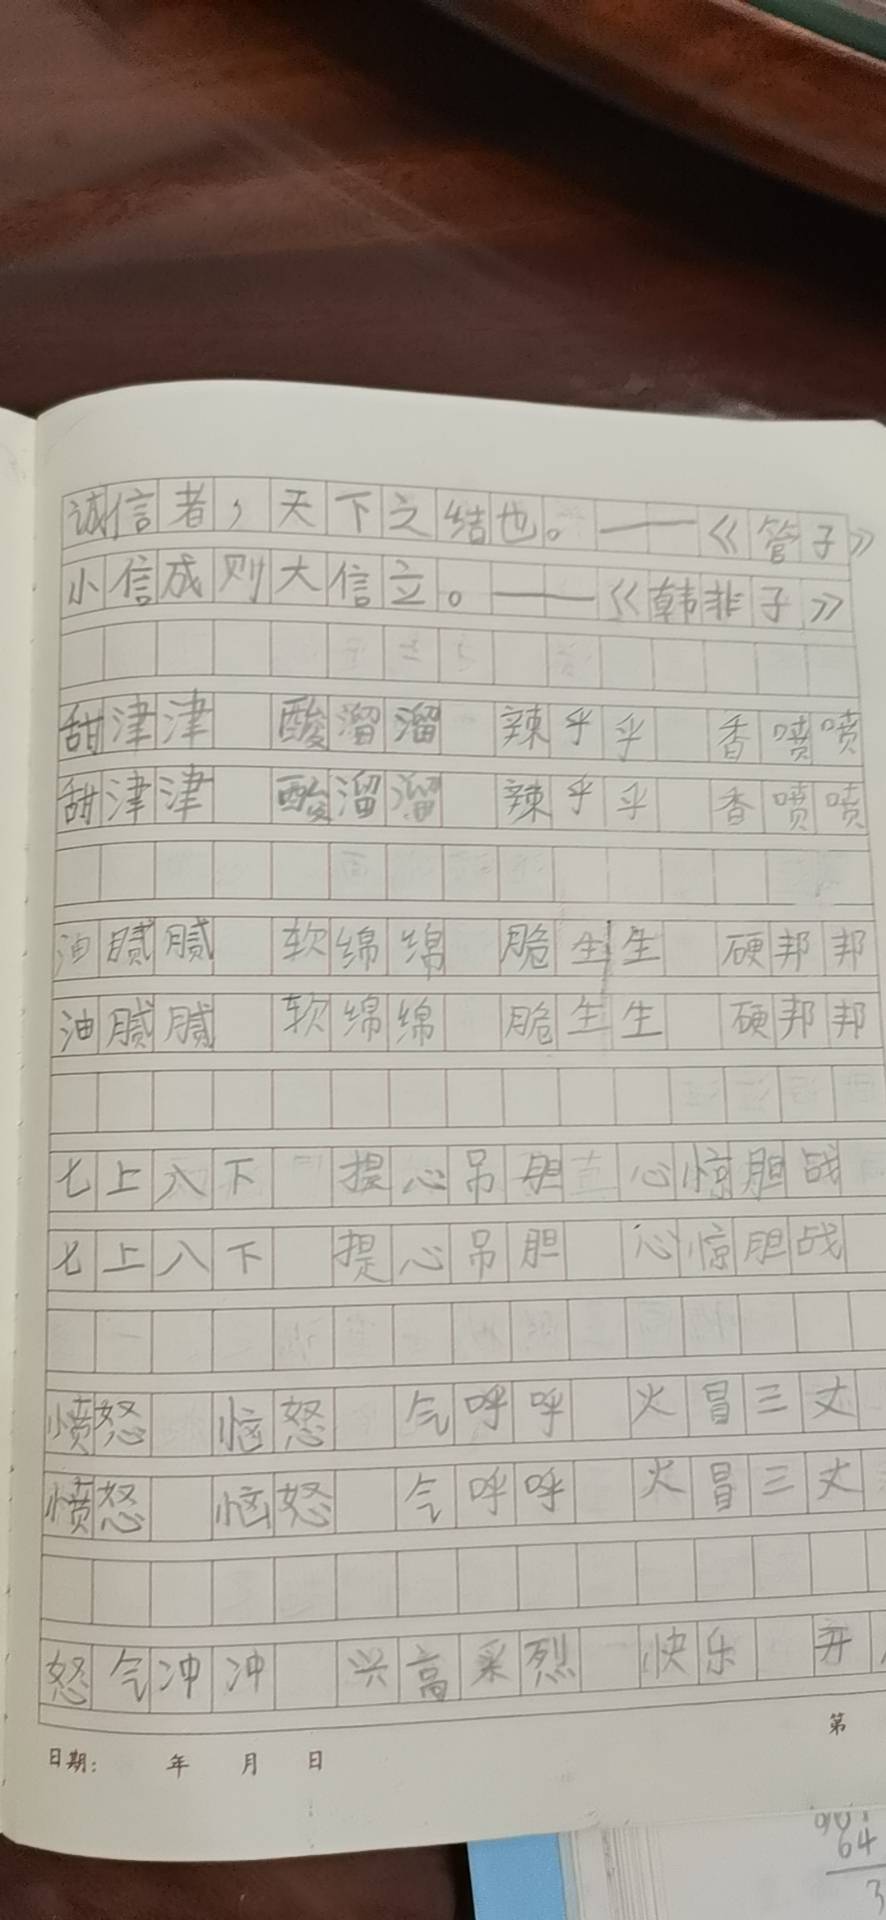 诚信者，天下之结也。——《管子》
小信成则大信立。——《韩非子》
甜津津 酸溜溜 辣乎乎 香喷喷
甜津津 酸溜溜 辣乎乎 香喷喷
油腻腻 软绵绵 脆生生 硬邦邦
油腻腻 软绵绵 脆生生 硬邦邦
七上八下 提心吊胆 心惊胆战
七上八下 提心吊胆 心惊胆战
愤怒 恼怒 气呼呼 火冒三丈
愤怒 恼怒 气呼呼 火冒三丈
怒气冲冲 兴高采烈 快乐 开
第
日期： 年 月 日
64
3